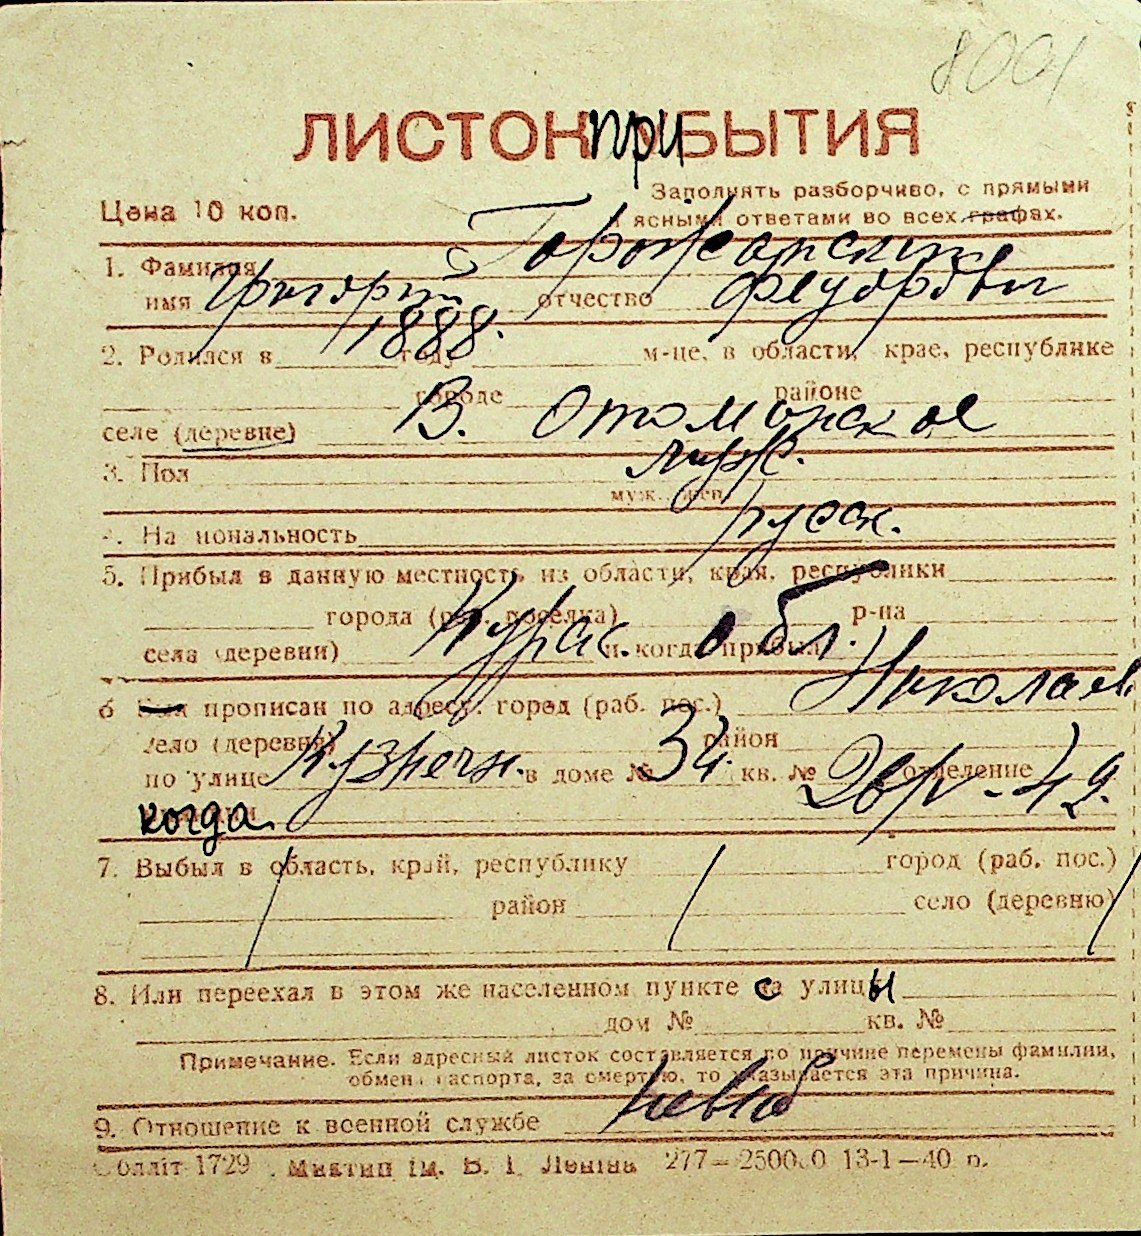 8001
ЛИСТОК ПРИБЫТИЯ
Заполнять разборчиво, с прямыми
Цена 10 коп.
и ясными ответами во всех графах.
1. Фамилия Горожанский
имя Григорий отчество Федорович
2. Родился в 1888. году м-це, в области, крае, республике
городе районе
селе (деревне) В. Отоманское
3. Пол муж.
муж. жен.
4. Национальность русск.
5. Прибыл в данную местность из области, края, республики
города (раб. поселка) р-на
села (деревни) Курск. обл. и когда прибыл
6 прописан по адресу: город (раб. пос.) Николаев
село (деревня) район
по улице Кузнечн. в доме № 34. кв. № отделение
когда
7. Выбыл в область, край, республику город (раб. пос.)
район село (деревню)
8. Или переехал в этом же населенном пункте с улицы
дом № кв. №
Примечание. Если адресный листок составляется по причине перемены фамилии,
обмена паспорта, за смертью, то указывается эта причина.
9. Отношение к военной службе невоб
Облліт 1729 . Миктип ім. В. І. Леніна 277—25000 13-1—40 р.